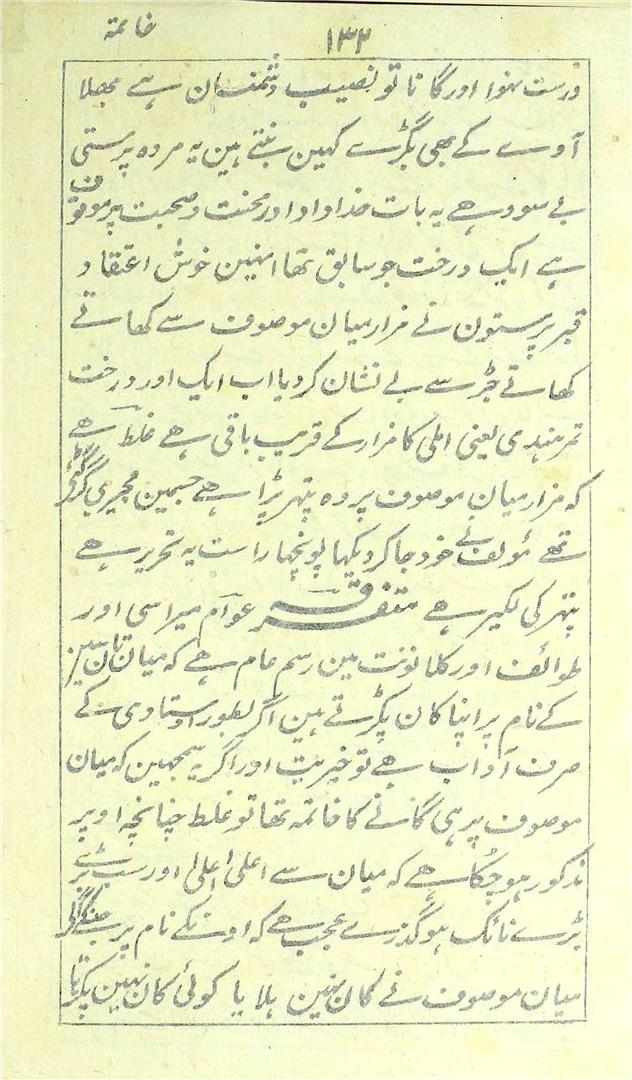 ۱۳۲ خاتمة
درست ہنوا اور گانا تو نصیب دشمنان ہے بھلا
آوے کے بھی بگڑے کہین بنتے ہین یہ مردہ پرستی
بے سود ہے یہ بات خداداد اور محنت و صحبت پر موقوف
ہے ایک درخت جو سابق تھا انہین خوش اعتقاد
قبر پرستون نے مزار میان موصوف سے کھاتے
کھاتے جڑ سے بے نشان کر دیا اب ایک اور درخت
تمر ہندی یعنی املی کا مزار کے قریب باقی ہے غلط ہے
کہ مزار میان موصوف پر وہ پتہر پڑا ہے جسمین
تھے مؤلف نے خود جا کر دیکہا پونچہا راست یہ تحریر ہے
پتہر کی لکیر ہے متفرقہ عوام میراسی اور
طوائف اور کلانونت مین رسم عام ہے کہ میان تان سین
کے نام پر اپنا کان پکڑتے ہین اگر بطور اوستادی کے
صرف آداب ہے تو خیریت اور اگر یہ سمجہین کہ میان
موصوف پر ہی گانے کا خاتمہ تھا تو غلط چنانچہ اوپر
مذکور ہو چکا ہے کہ میان سے اعلی اعلی اور بڑے
بڑے نائک ہو گذرے عجب ہے کہ اونکے نام پر
میان موصوف نے کان نہین ہلایا کوئی کان نہین پکڑتا